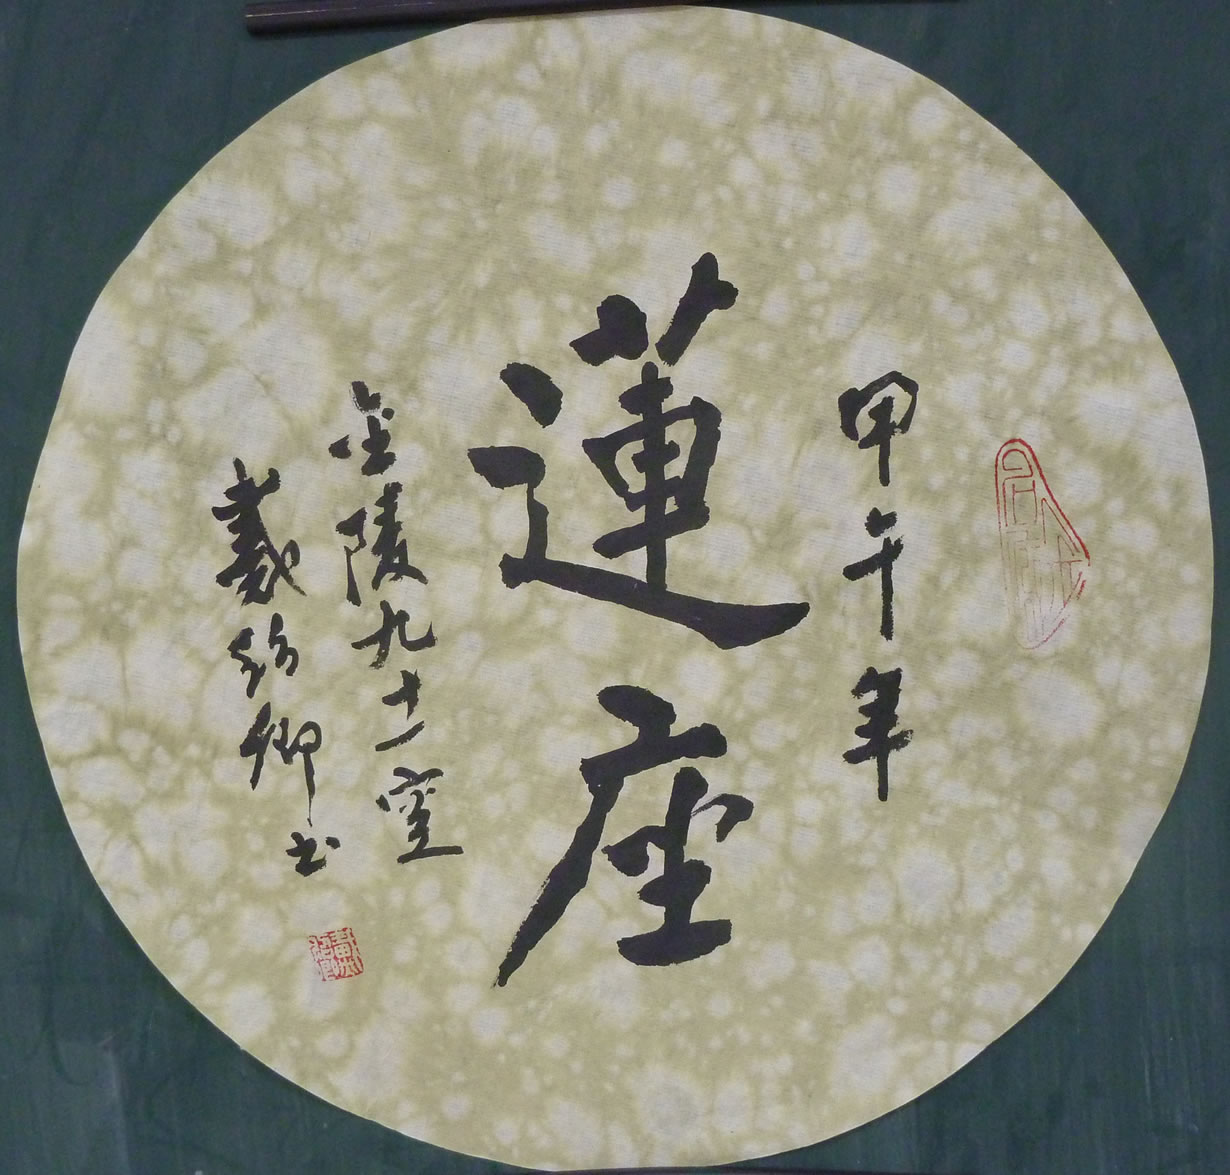 甲午年
蓮座
金陵九十一叟
戴鈞卿书